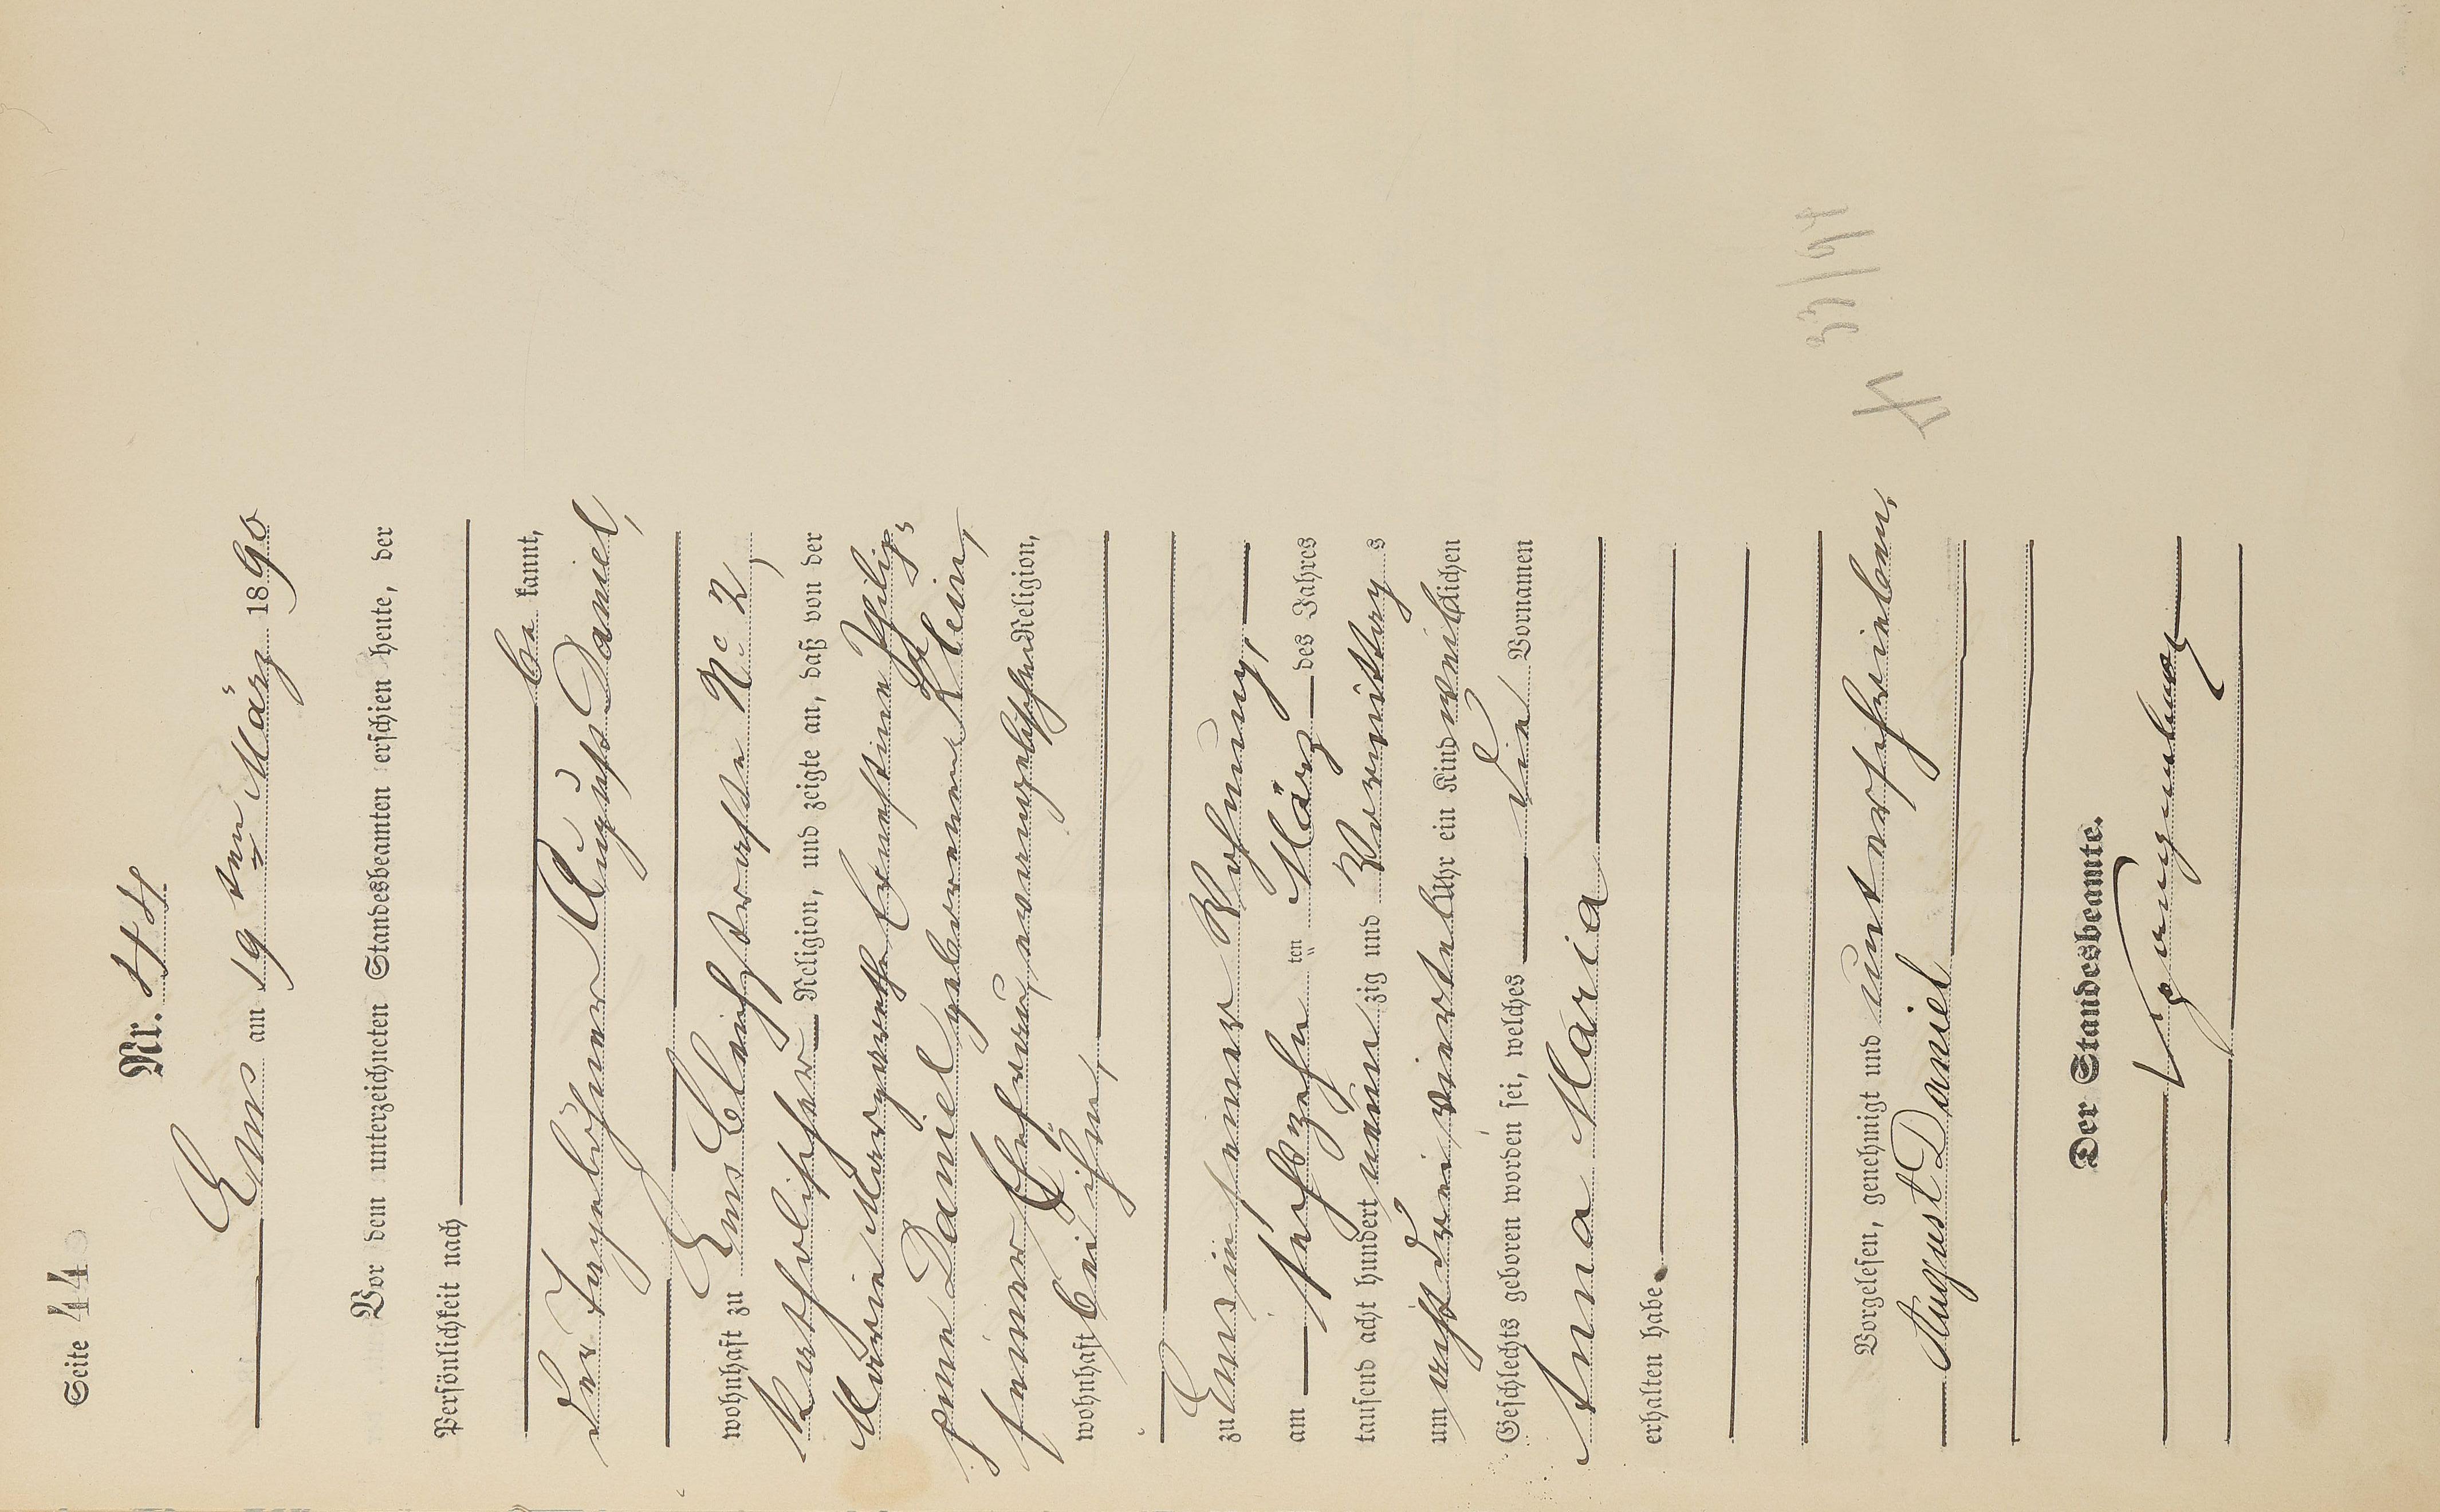 Seite 44
Nr. 44.
Ems am 19ten März 1890
Vor dem unterzeichneten Standesbeamten erschien heute, der
Persönlichkeit nach
be kannt,
der Tagelöhner August Daniel,
wohnhaft zu Ems Bleichstraße No 2,
katholischer Religion, und zeigte an, daß von der
Marie Margarethe Ernestine Philip-
pine Daniel geborenen Klein,
seiner Ehefrau, evangelischer Religion,
wohnhaft bei ihm,
zu Ems in seiner Wohnung,
am sechszehn ten März des Jahres
tausend acht hundert neun zig und Vormittag s
um acht drei viertel Uhr ein Kind weib lichen
Geschlechts geboren worden sei, welches die Vornamen
Anna Maria
erhalten habe.
Vorgelesen, genehmigt und unterschrieben,
August Daniel
Der Standesbeamte.
33/94